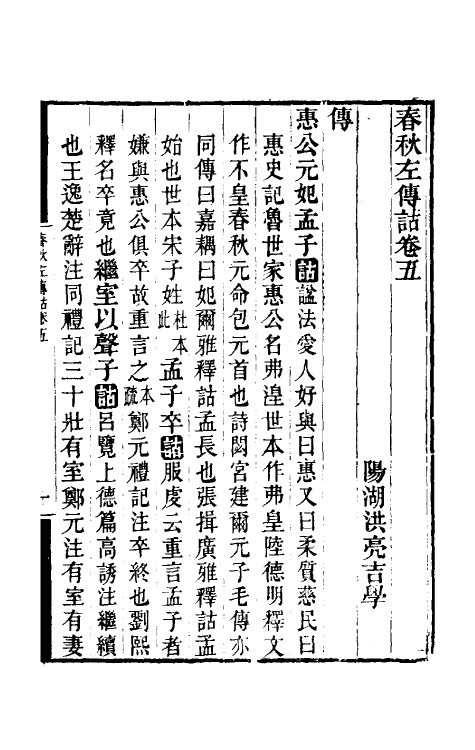 春秋左傳詁卷五
陽湖洪亮吉學
傳
惠公元妃孟子詁諡法愛人好與曰惠又曰柔質慈民曰
惠史記魯世家惠公名弗湟世本作弗皇陸德明釋文
作不皇春秋元命包元首也詩閟宮建爾元子毛傳亦
同傳曰嘉耦曰妃爾雅釋詁孟長也張揖廣雅釋詁孟
始也世本宋子姓杜本此孟子卒詁服虔云重言孟子者
嫌與惠公俱卒故重言之本疏鄭元禮記注卒終也劉熙
釋名卒竟也繼室以聲子詁呂覽上德篇高誘注繼續
也王逸楚辭注同禮記三十壯有室鄭元注有室有妻
春秋左傳詁卷五
一